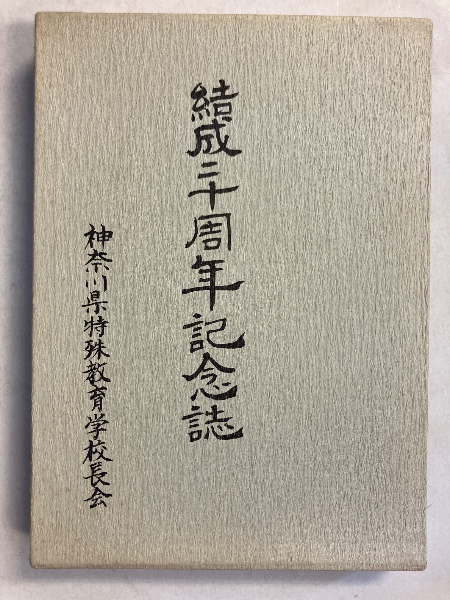 結成二十周年記念誌
神奈川県特殊教育学校長会